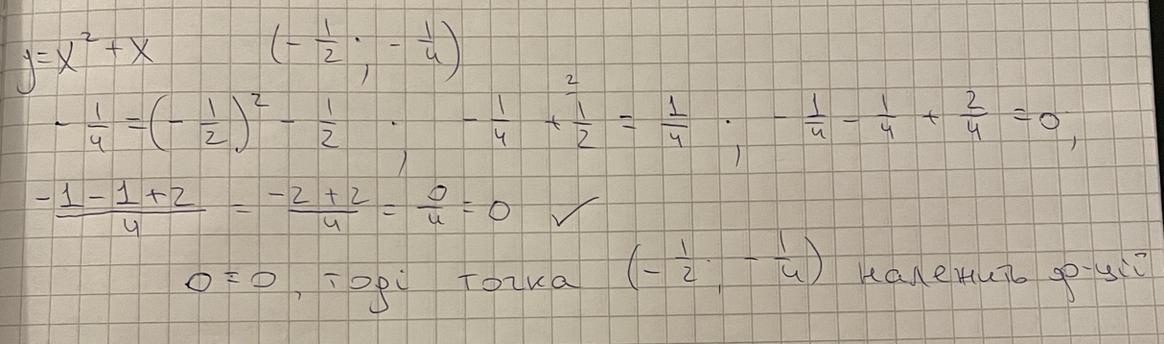 y=x²+x (-1/2; -1/4)
-1/4=(-1/2)²-1/2; -1/4+1/2²=1/4; -1/4-1/4+2/4=0;
-1-1+2/4=-2+2/4=0/4=0 ✓
0=0, тоді точка (-1/2; -1/4) належить ф-ції